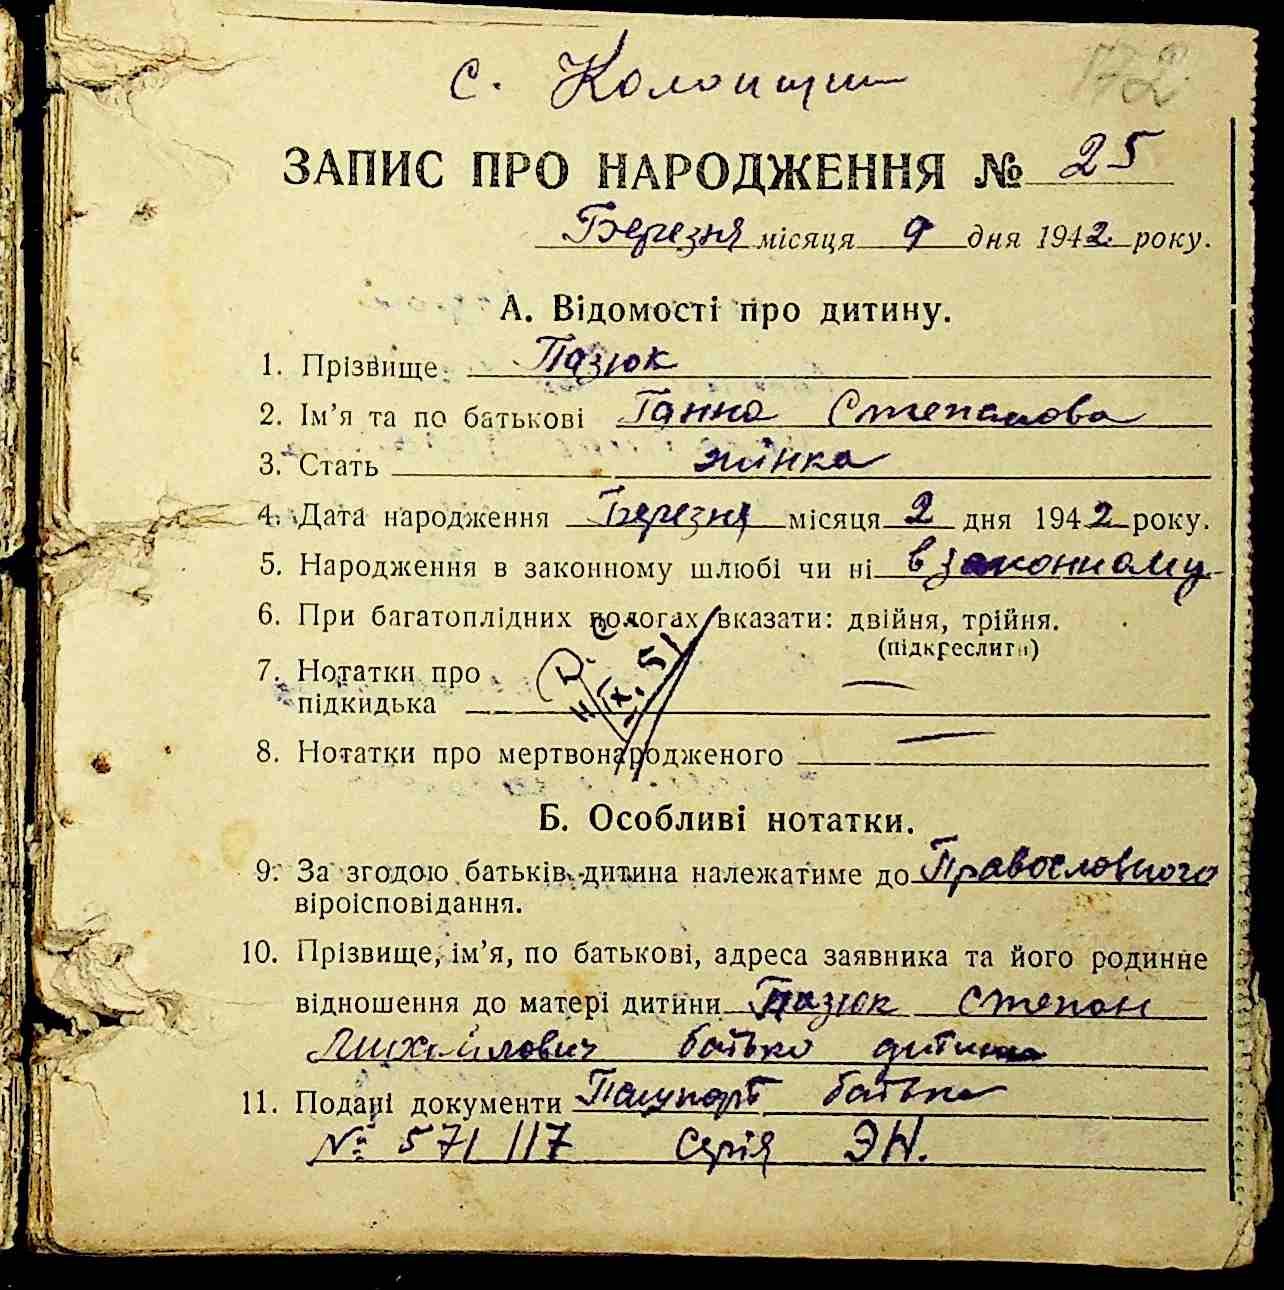 с. Колонщин
172
ЗАПИС ПРО НАРОДЖЕННЯ № 25
Березня місяця 9 дня 1942 року.
А. Відомості про дитину.
1. Прізвище Пазюк
2. Ім'я та по батькові Ганна Степанова
3. Стать жінка
4. Дата народження Березня місяця 2 дня 1942 року.
5. Народження в законному шлюбі чи ні в законному
6. При багатоплідних пологах вказати: двійня, трійня.
(підкреслити)
7. Нотатки про
підкидька —
8. Нотатки про мертвонародженого —
Б. Особливі нотатки.
9. За згодою батьків дитина належатиме до Православного
віроісповідання.
10. Прізвище, ім'я, по батькові, адреса заявника та його родинне
відношення до матері дитини Пазюк Степан
Михайлович батько дитини
11. Подані документи Пашпорт батька
№ 571117 Серія ЭН.